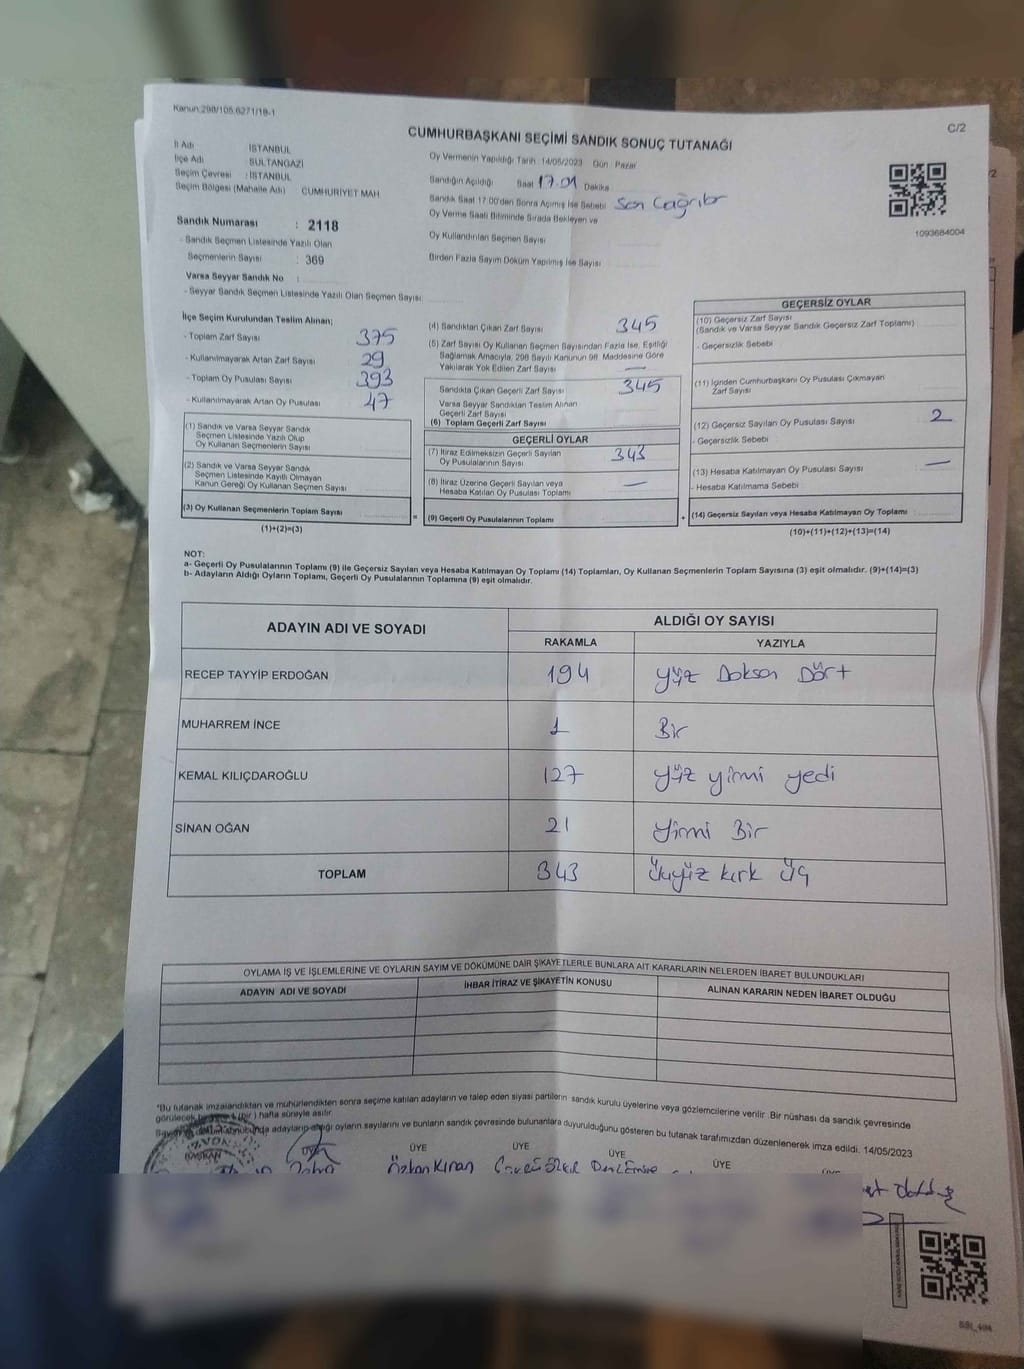 Kanun:298/105,6271/18-1
C/2
CUMHURBAŞKANI SEÇİMİ SANDIK SONUÇ TUTANAĞI
İl Adı İSTANBUL
İlçe Adı SULTANGAZİ
Seçim Çevresi : İSTANBUL
Seçim Bölgesi (Mahalle Adı) : CUMHURİYET MAH.
Sandık Numarası : 2118
- Sandık Seçmen Listesinde Yazılı Olan
Seçmenlerin Sayısı : 369
Varsa Seyyar Sandık No :
- Seyyar Sandık Seçmen Listesinde Yazılı Olan Seçmen Sayısı
Oy Vermenin Yapıldığı Tarih 14/05/2023 Gün : Pazar
Sandığın Açıldığı Saat 17.01 Dakika
Sandık Saat 17:00'den Sonra Açımış İse Sebebi Son Çağrılar
Oy Verme Saati Bitiminde Sırada Bekleyen ve
Oy Kullandırılan Seçmen Sayısı
Birden Fazla Sayım Döküm Yapılmış İse Sayısı
1093684004
İlçe Seçim Kurulundan Teslim Alınan;
- Toplam Zarf Sayısı 375
- Kullanılmayarak Artan Zarf Sayısı 29
- Toplam Oy Pusulası Sayısı 393
- Kullanılmayarak Artan Oy Pusulası 47
(1) Sandık ve Varsa Seyyar Sandık
Seçmen Listesinde Yazılı Olup
Oy Kullanan Seçmenlerin Sayısı
(2) Sandık ve Varsa Seyyar Sandık
Seçmen Listesinde Kayıtlı Olmayan
Kanun Gereği Oy Kullanan Seçmen Sayısı
(3) Oy Kullanan Seçmenlerin Toplam Sayısı
(1)+(2)=(3)
=
(4) Sandıktan Çıkan Zarf Sayısı 345
(5) Zarf Sayısı Oy Kullanan Seçmen Sayısından Fazla İse, Eşitliği
Sağlamak Amacıyla, 298 Sayılı Kanunun 98. Maddesine Göre
Yakılarak Yok Edilen Zarf Sayısı —
Sandıkta Çıkan Geçerli Zarf Sayısı 345
Varsa Seyyar Sandıktan Teslim Alınan
Geçerli Zarf Sayısı
(6) Toplam Geçerli Zarf Sayısı
GEÇERLİ OYLAR
(7) İtiraz Edilmeksizin Geçerli Sayılan
Oy Pusulalarının Sayısı 343
(8) İtiraz Üzerine Geçerli Sayılan veya
Hesaba Katılan Oy Pusulası Toplamı —
(9) Geçerli Oy Pusulalarının Toplamı
+
GEÇERSİZ OYLAR
(10) Geçersiz Zarf Sayısı
(Sandık ve Varsa Seyyar Sandık Geçersiz Zarf Toplamı)
- Geçersizlik Sebebi
(11) İçinden Cumhurbaşkanı Oy Pusulası Çıkmayan
Zarf Sayısı
(12) Geçersiz Sayılan Oy Pusulası Sayısı 2
- Geçersizlik Sebebi
(13) Hesaba Katılmayan Oy Pusulası Sayısı —
- Hesaba Katılmama Sebebi
(14) Geçersiz Sayılan veya Hesaba Katılmayan Oy Toplamı
(10)+(11)+(12)+(13)=(14)
NOT:
a- Geçerli Oy Pusulalarının Toplamı (9) ile Geçersiz Sayılan veya Hesaba Katılmayan Oy Toplamı (14) Toplamları, Oy Kullanan Seçmenlerin Toplam Sayısına (3) eşit olmalıdır. (9)+(14)=(3)
b- Adayların Aldığı Oyların Toplamı, Geçerli Oy Pusulalarının Toplamına (9) eşit olmalıdır.
ADAYIN ADI VE SOYADI
ALDIĞI OY SAYISI
RAKAMLA YAZIYLA
RECEP TAYYİP ERDOĞAN 194 Yüz Doksan Dört
MUHARREM İNCE 1 Bir
KEMAL KILIÇDAROĞLU 127 Yüz yirmi yedi
SİNAN OĞAN 21 Yirmi Bir
TOPLAM 343 Üçyüz kırk üç
OYLAMA İŞ VE İŞLEMLERİNE VE OYLARIN SAYIM VE DÖKÜMÜNE DAİR ŞİKAYETLERLE BUNLARA AİT KARARLARIN NELERDEN İBARET BULUNDUKLARI
ADAYIN ADI VE SOYADI İHBAR İTİRAZ VE ŞİKAYETİN KONUSU ALINAN KARARIN NEDEN İBARET OLDUĞU
*Bu tutanak imzalandıktan ve mühürlendikten sonra seçime katılan adayların ve talep eden siyasi partilerin sandık kurulu üyelerine veya gözlemcilerine verilir. Bir nüshası da sandık çevresinde
görülecek bir (bir) hafta süreyle asılır.
adayların aldığı oyların sayılarını ve bunların sandık çevresinde bulunanlara duyurulduğunu gösteren bu tutanak tarafımızdan düzenlenerek imza edildi. 14/05/2023
BAŞKAN ÜYE ÜYE ÜYE ÜYE
Özkan Kınan